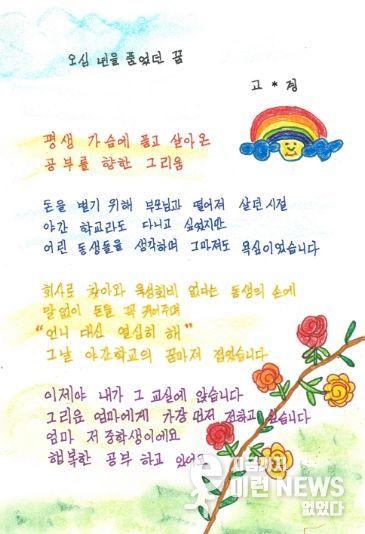 오십 년을 품었던 꿈
고 * 점
평생 가슴에 품고 살아온
공부를 향한 그리움
돈을 벌기 위해 부모님과 떨어져 살던 시절
야간 학교라도 다니고 싶었지만
어린 동생들을 생각하며 그마저도 욕심이었습니다
회사로 찾아와 육성회비 없다는 동생의 손에
말없이 돈을 꼭 쥐어주며
"언니 대신 열심히 해"
그날 야간학교의 꿈마저 접었습니다
이제야 내가 그 교실에 앉습니다
그리운 엄마에게 가장 먼저 전하고 싶습니다
엄마 저 중학생이에요
행복한 공부 하고 있어요
지금까지
이런 NEWS
없었다